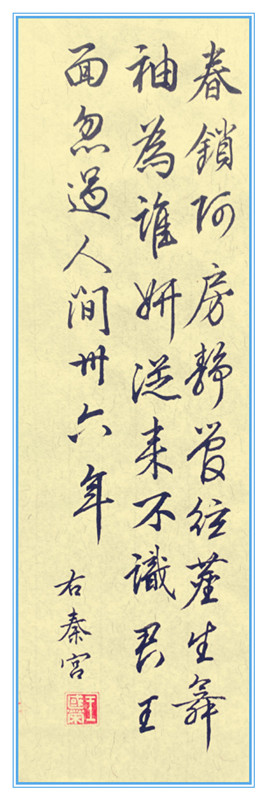 春鎖阿房靜管絃塵生舞
袖為誰妍從來不識君王
面忽過人間卅六年
右秦宮